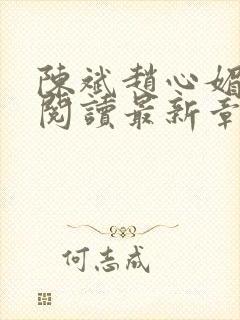 陳斌趙心媚
閱讀最新章
何志成